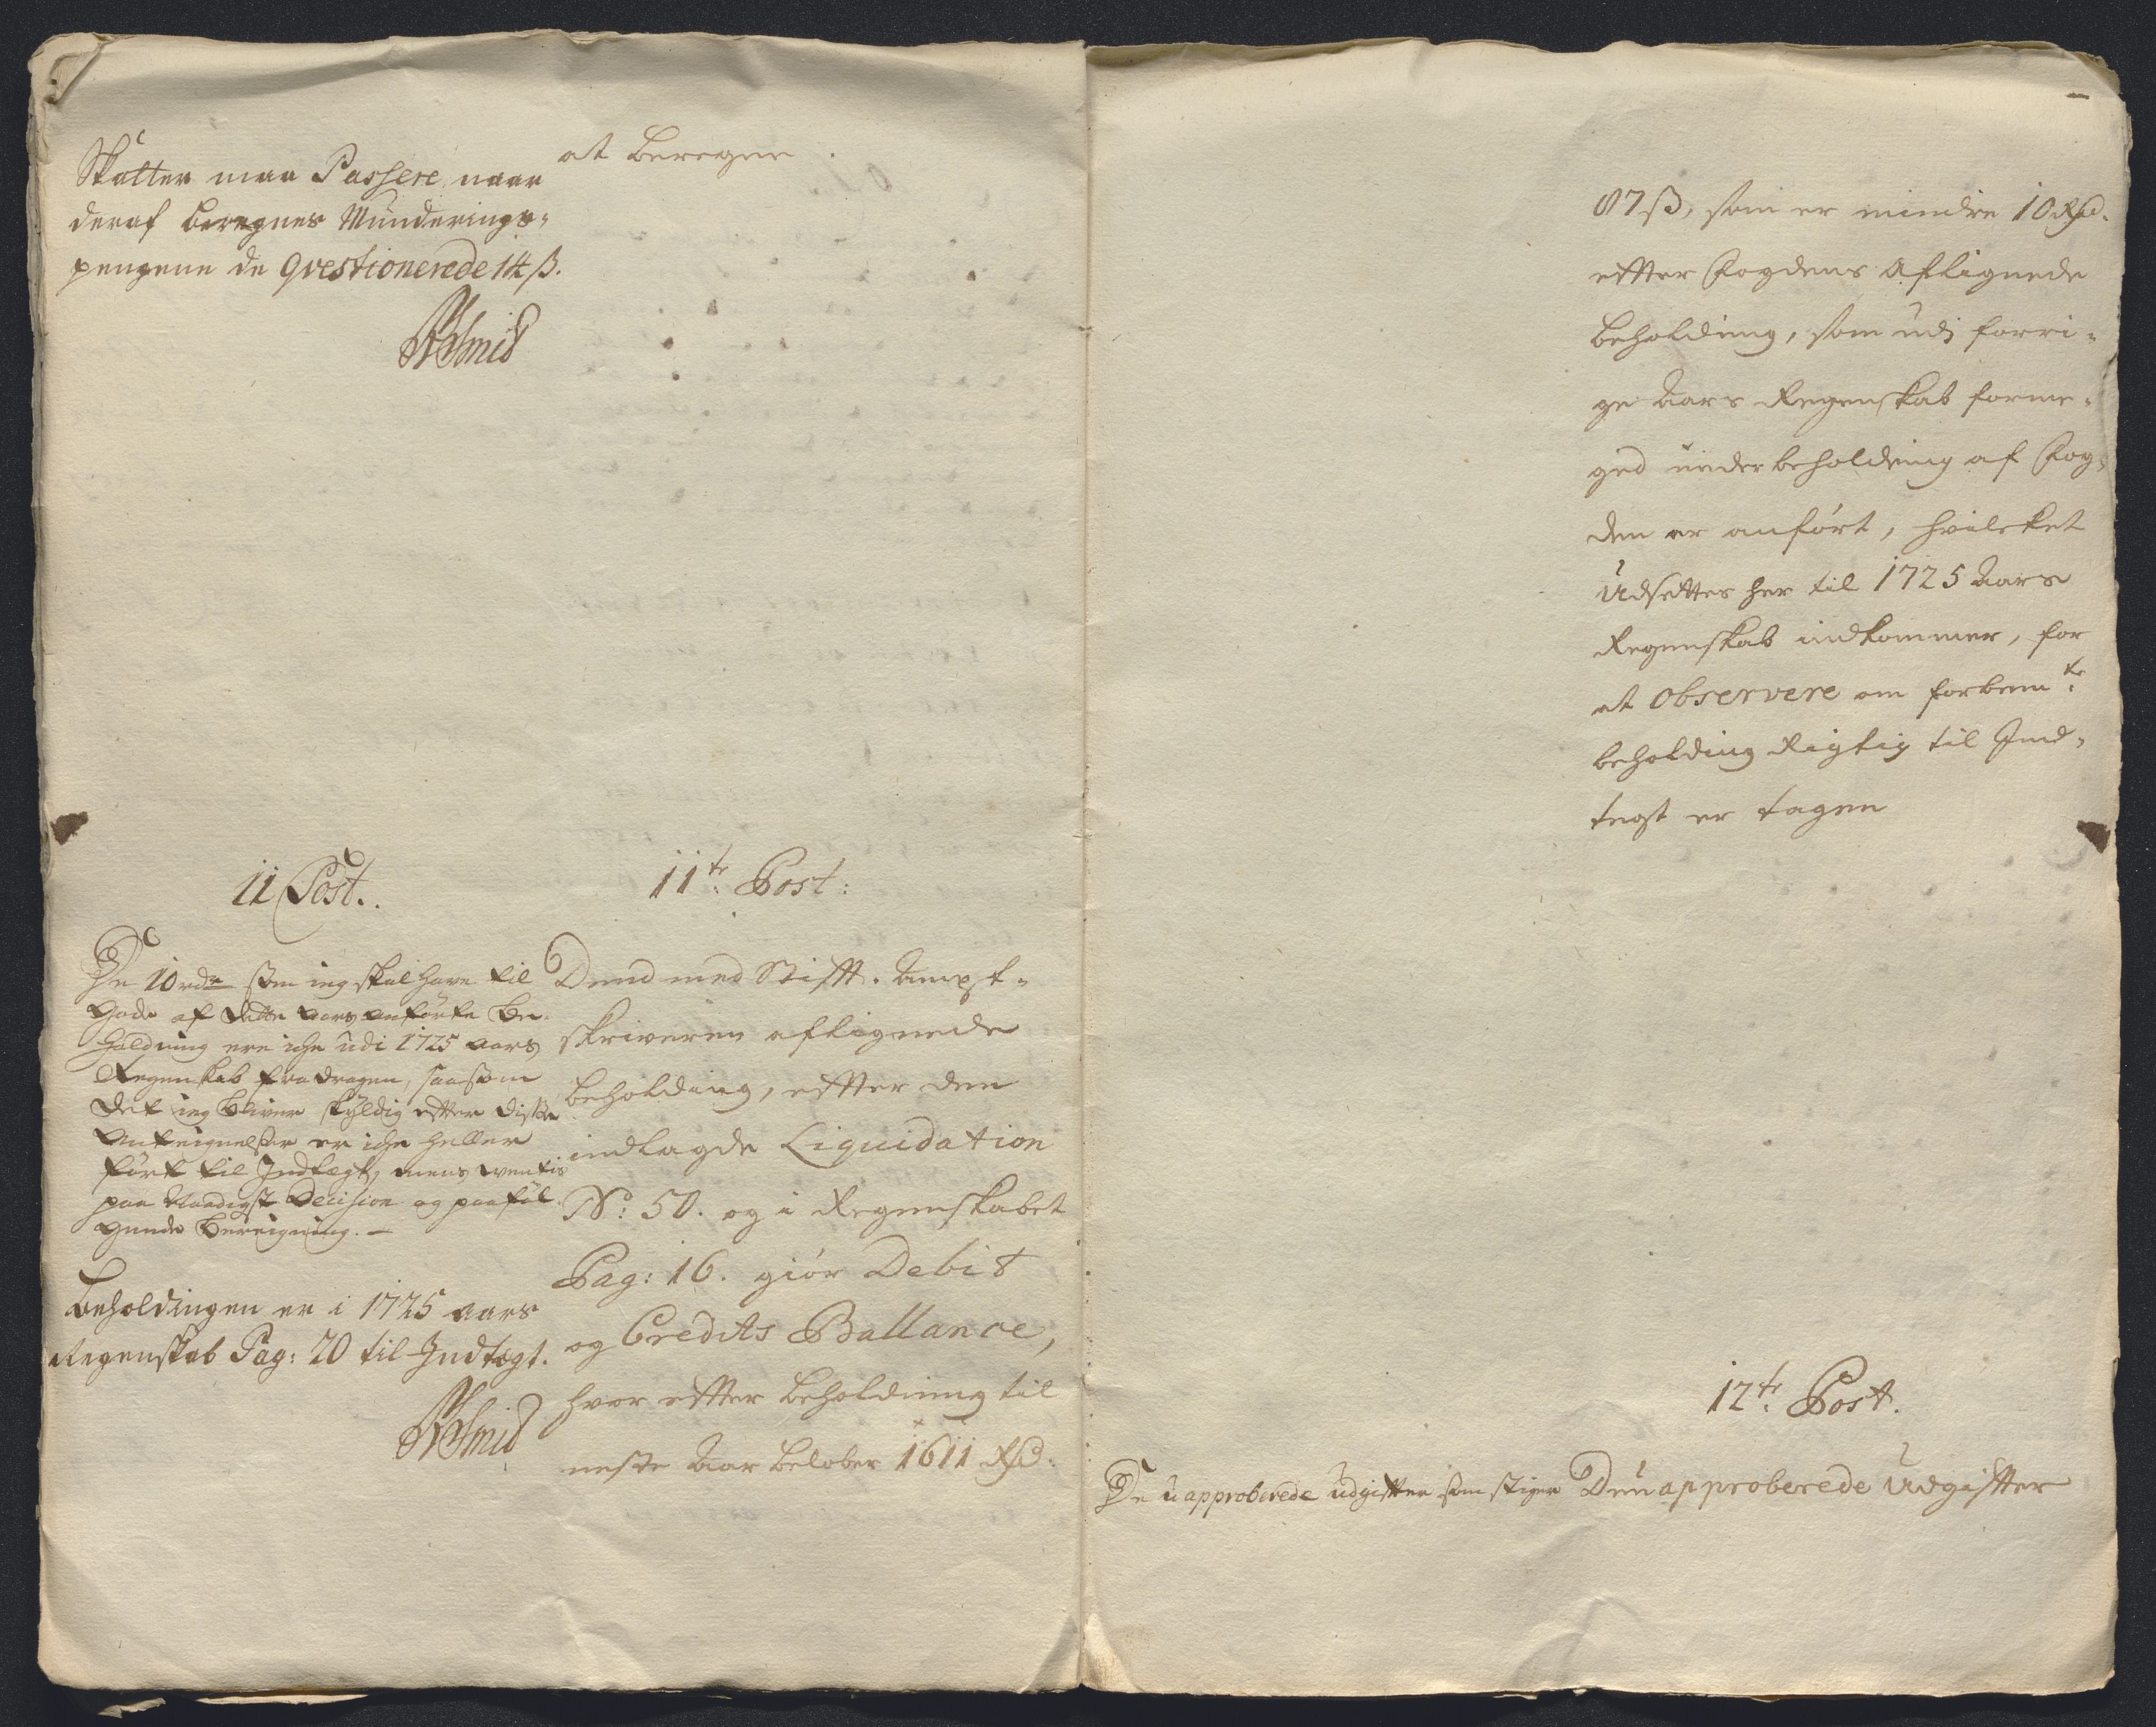 Skatter maa Passere, naar
deraf beregnes Munderings-
pengene de qvestionerede 14 ß.
at beregne.
11 Post.
De 10 rdr som ieg skal have til
gode af dette aars anførte be-
holdning ere iche udi 1725 aars
Regenskab fradragen, saasom
det ieg bliver skyldig efter disse
Anteignelser er iche heller
ført til Indtægt, mens ventis
paa Naadigst Decision og paaføl-
gende bereigning.
Beholdingen er i 1725 aars
Regenskab Pag: 20 til Indtægt.
11te Post:
Dend med Stifft-Ampt-
skriveren aflignede
beholding, effter den
indlagde Liquidation
No: 50. og i Regenskabet
Pag: 16. giör Debit
og Credits Ballance,
hvor effter beholdning til
neste Aar beløber 1611 Rd:
87 ß, som er mindre 10 Rd:
effter Fogdens aflignede
beholding, som udj forri-
ge Aars Regenskab forme-
ged under beholdning af Fog-
den er anført, hvilcket
Udsettes her til 1725 Aars
Regenskab indkommer, for
at Observere om forbemte
beholding Rigtig til Ind-
tegt er tagen
12te Post.
De uapproberede udgifter som stiger
De uapproberede Udgiffter